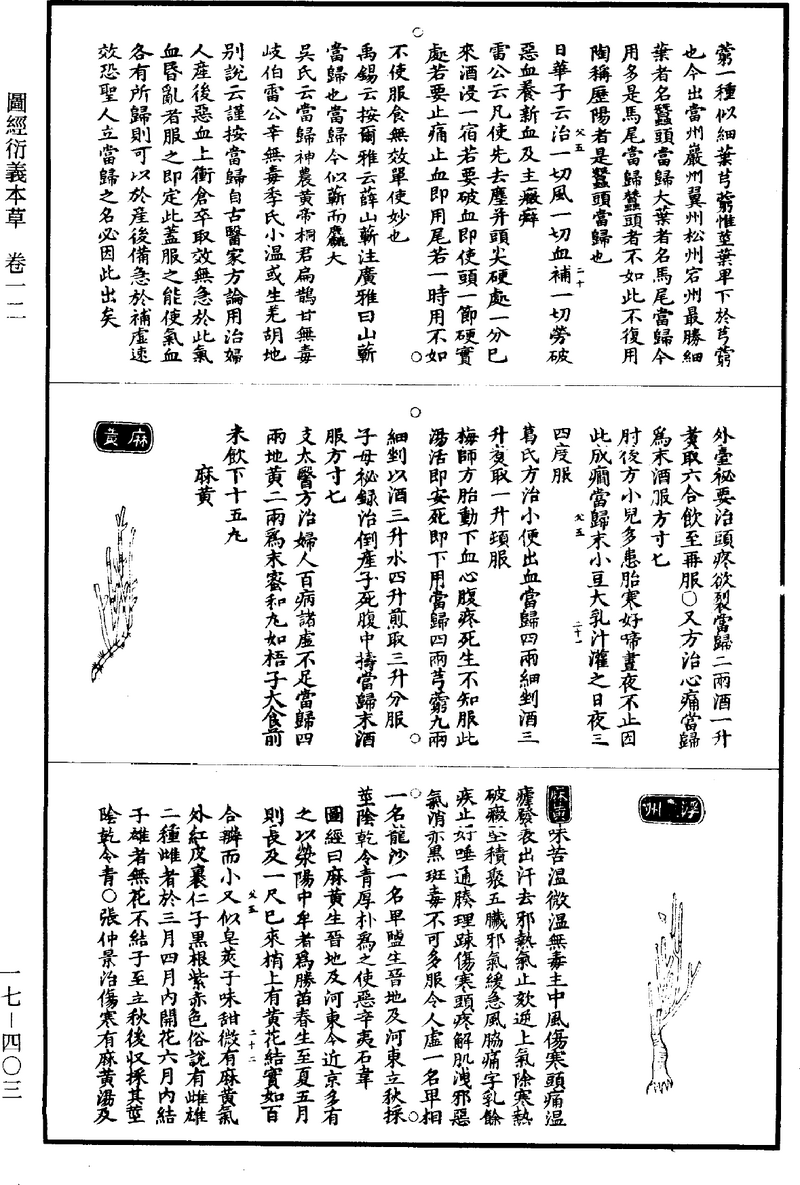 圖經衍義本草　卷一二
一七—四〇三
藭一種似細葉芎藭惟莖葉卑下於芎藭
也今出當州巖州翼州松州宕州最勝細
葉者名蠶頭當歸大葉者名馬尾當歸今
用多是馬尾當歸蠶頭者不如此不復用
陶稱歷陽者是蠶頭當歸也
日華子云治一切風一切血補一切勞破
惡血養新血及主癥癖
雷公云凡使先去塵并頭尖硬處一分已
來酒浸一宿若要破血即使頭一節硬實
處若要止痛止血即用尾若一時用不如
不使服食無效單使妙也
禹錫云按爾雅云薜山蘄注廣雅曰山蘄
當歸也當歸今似蘄而麤大
吳氏云當歸神農黃帝桐君扁鵲甘無毒
岐伯雷公辛無毒季氏小溫或生羌胡地
別說云謹按當歸自古醫家方論用治婦
人產後惡血上衝倉卒取效無急於此氣
血昏亂者服之即定此蓋服之能使氣血
各有所歸則可以於產後備急於補虛速
效恐聖人立當歸之名必因此出矣
父五
二十
外臺祕要治頭疼欲裂當歸二兩酒一升
煑取六合飲至再服〇又方治心痛當歸
為末酒服方寸匕
肘後方小兒多患胎寒好啼晝夜不止因
此成癇當歸末小豆大乳汁灌之日夜三
四度服
葛氏方治小便出血當歸四兩細剉酒三
升煑取一升頓服
梅師方胎動下血心腹疼死生不知服此
湯活即安死即下用當歸四兩芎藭九兩
細剉以酒三升水四升煎取三升分服
子母祕錄治倒產子死腹中擣當歸末酒
服方寸匕
支太醫方治婦人百病諸虛不足當歸四
兩地黃二兩為末蜜和丸如梧子大食前
米飲下十五丸
父五
二十一
麻黃
麻黃
州
麻黃味苦溫微溫無毒主中風傷寒頭痛溫
瘧發表出汗去邪熱氣止欬逆上氣除寒熱
破癥堅積聚五臟邪氣緩急風脇痛字乳餘
疾止好唾通腠理踈傷寒頭疼解肌洩邪惡
氣消赤黑斑毒不可多服令人虛一名卑相
一名龍沙一名卑鹽生晉地及河東立秋採
莖陰乾令青厚朴為之使惡辛夷石韋
圖經曰麻黃生晉地及河東今近京多有
之以滎陽中牟者為勝苗春生至夏五月
則長及一尺已來梢上有黃花結實如百
合瓣而小又似皂莢子味甜微有麻黃氣
外紅皮裹仁子黑根紫赤色俗說有雌雄
二種雌者於三月四月內開花六月內結
子雄者無花不結子至立秋後收採其莖
陰乾令青〇張仲景治傷寒有麻黃湯及
父五
二十二